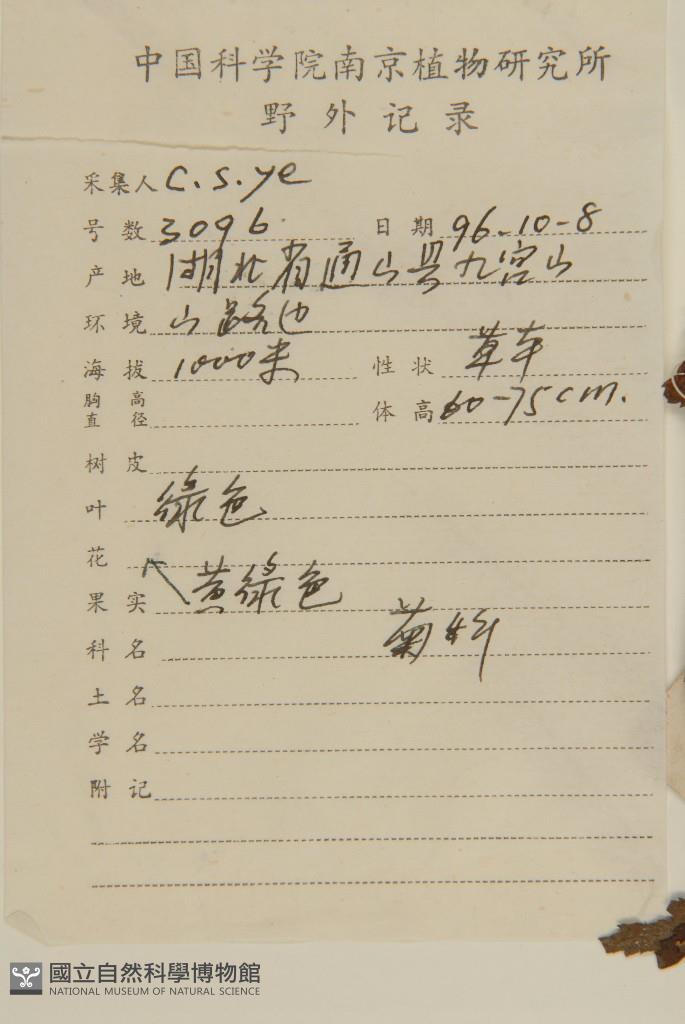 中国科学院南京植物研究所
野外记录
采集人 C.S.Ye
号数 3096 日期 96-10-8
产地 湖北省通山县九宫山
环境 山路边
海拔 1000米 性状 草本
胸高直径 体高 60-75cm.
树皮
叶 绿色
花
果实 黄绿色
菊科
科名
土名
学名
附记
國立自然科學博物館
NATIONAL MUSEUM OF NATURAL SCIENCE